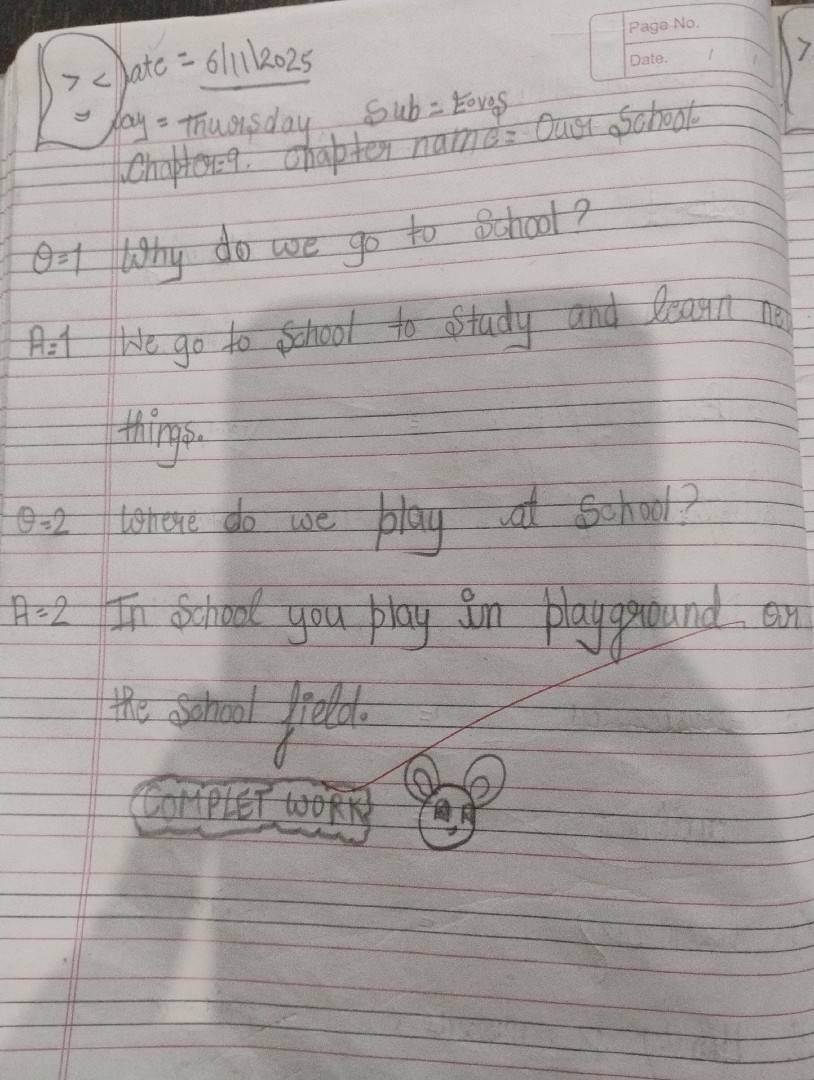 Page No.
Date. / /
Date = 6/11/2025
Day = Thuorsday Sub =
Chapter=9. Chapter name = Our School.
Q=1 Why do we go to School?
A=1 We go to School to Study and learn ne
things.
Q=2 Where do we play at School?
A=2 In School you play in playground or
the School field.
COMPLET WORK